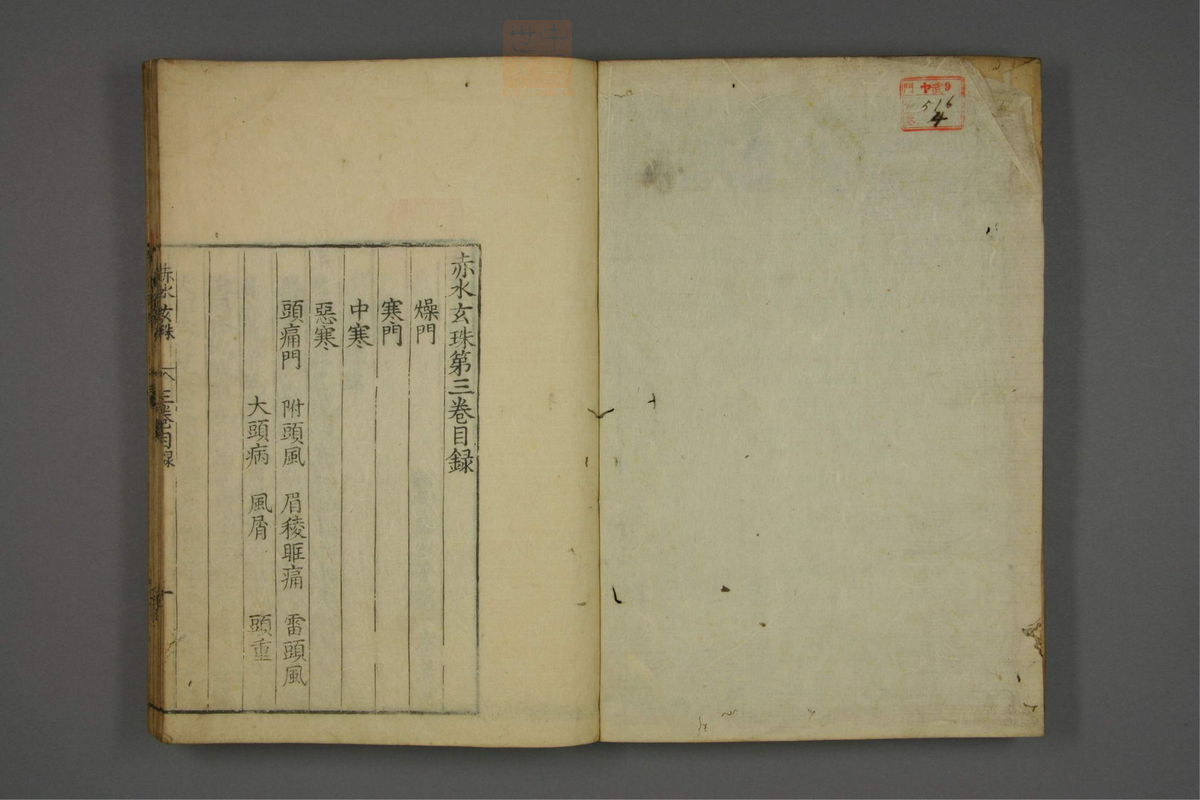 赤水玄珠第三卷目録
燥門
寒門
中寒
惡寒
頭痛門 附頭風 眉稜眶痛 雷頭風
大頭病 風屑 頭重
赤水玄珠 三卷目録 一
門
516
4